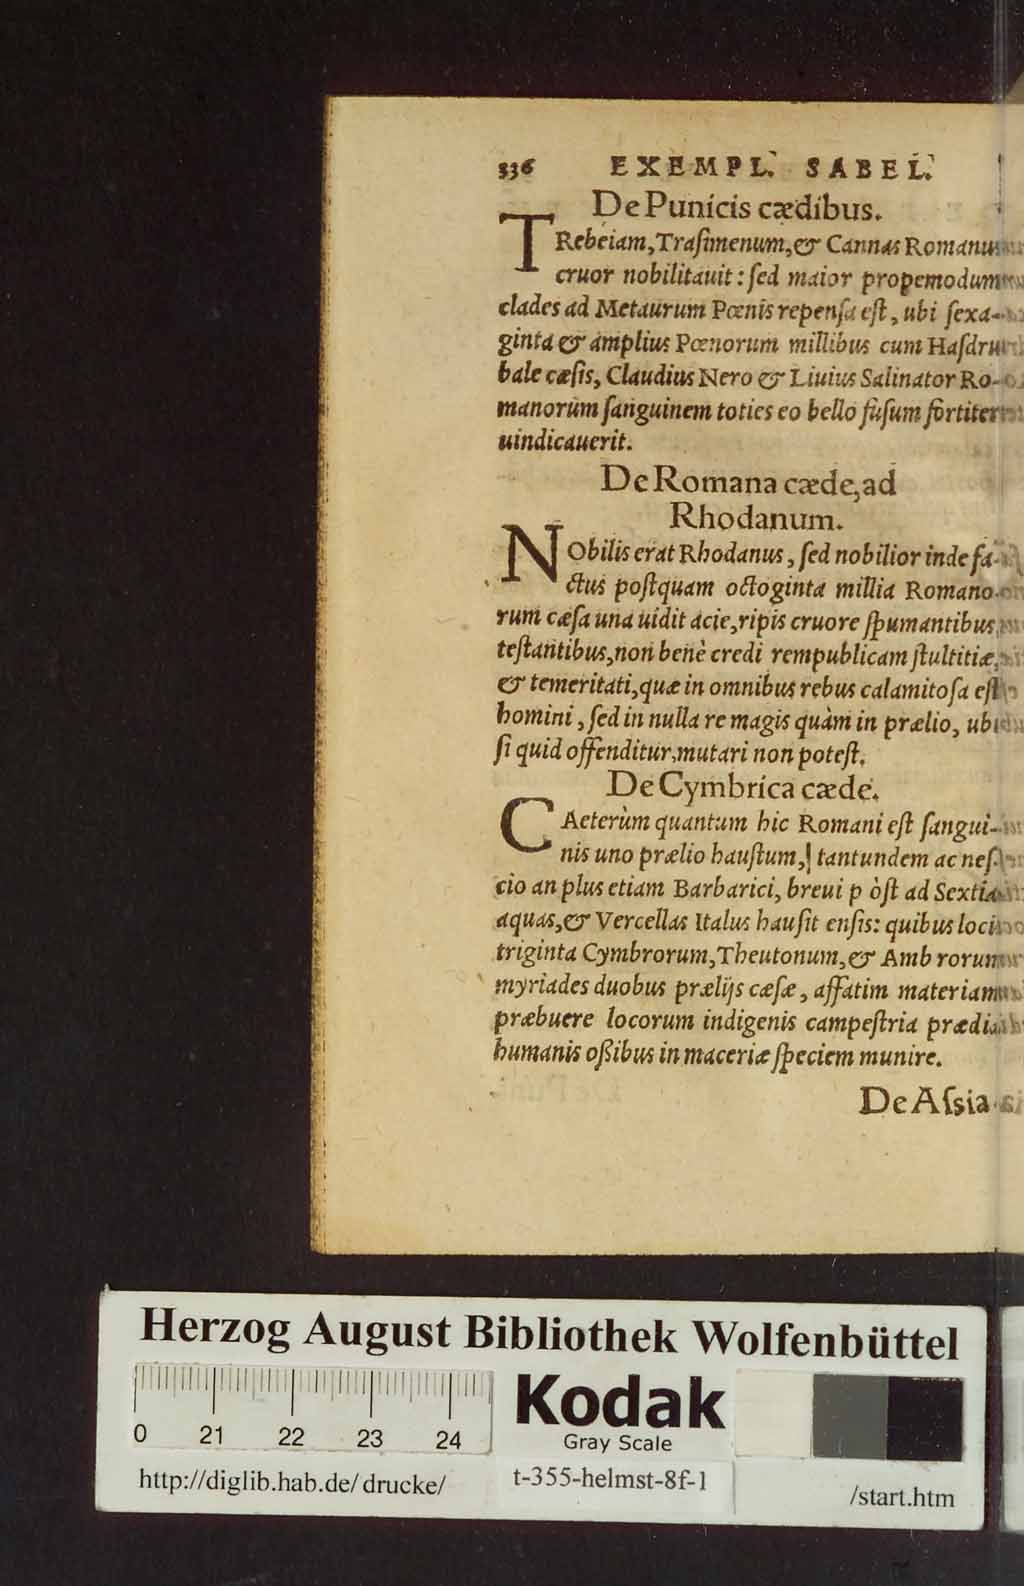 336 EXEMPL. SABEL.
De Punicis cædibus.
TRebeiam, Trasimenum, & Cannas Romanus
cruor nobilitauit: sed maior propemodum
clades ad Metaurum Pœnis repensa est, ubi sexa-
ginta & amplius Pœnorum millibus cum Hasdru
bale cæsis, Claudius Nero & Liuius Salinator Ro-
manorum sanguinem toties eo bello fusum fortiter
uindicauerit.
De Romana cæde, ad
Rhodanum.
NObilis erat Rhodanus, sed nobilior inde fa-
ctus postquam octoginta millia Romano-
rum cæsa una uidit acie, ripis cruore spumantibus,
testantibus, non benè credi rempublicam stultitiæ,
& temeritati, quæ in omnibus rebus calamitosa est
homini, sed in nulla re magis quàm in prælio, ubi
si quid offenditur, mutari non potest.
De Cymbrica cæde.
CAeterùm quantum hic Romani est sangui-
nis uno prælio haustum, tantundem ac nes-
cio an plus etiam Barbarici, breui p òst ad Sextia
aquas, & Vercellas Italus hausit ensis: quibus locis
triginta Cymbrorum, Theutonum, & Amb rorum
myriades duobus prælijs cæsæ, affatim materiam
præbuere locorum indigenis campestria prædia
humanis ossibus in maceriæ speciem munire.
De Assia
Herzog August Bibliothek Wolfenbüttel
0 21 22 23 24
Kodak
Gray Scale
http://diglib.hab.de/drucke/ t-355-helmst-8f-1 /start.htm